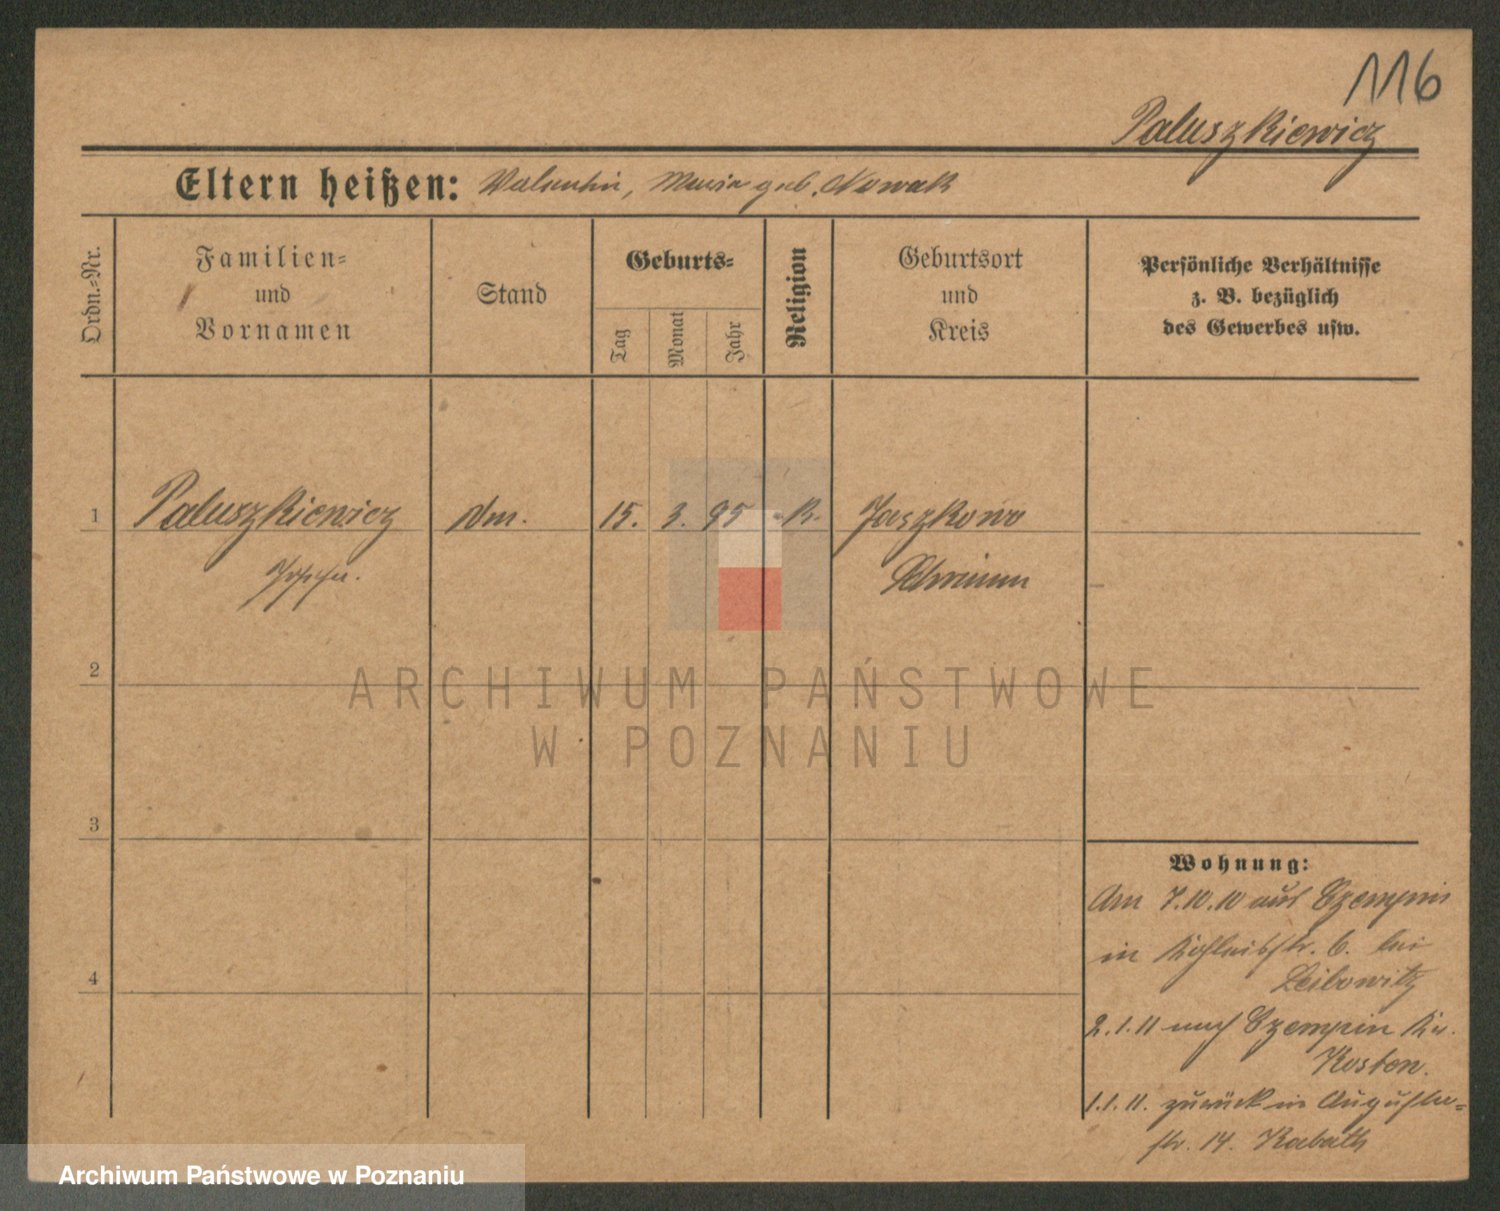 116
Paluszkiewicz
Eltern heißen: Valentin, Maria geb. Nowak
Ordn.-Nr.
Familien-
und
Vornamen
Stand
Geburts-
Tag
Monat
Jahr
Religion
Geburtsort
und
Kreis
Persönliche Verhältnisse
z. B. bezüglich
des Gewerbes usw.
1 Paluszkiewicz 15. 3. 95 k. Jaszkowo
Schrimm
2
3
4
Wohnung:
Am 7.10.10 aus Czempin
in 6. bei
Leibowitz
2.1.11 nach Czempin Kr.
Kosten.
1.1.11. zurück in Augusta-
str. 14. Kabath
ARCHIWUM PAŃSTWOWE
W POZNANIU
Archiwum Państwowe w Poznaniu